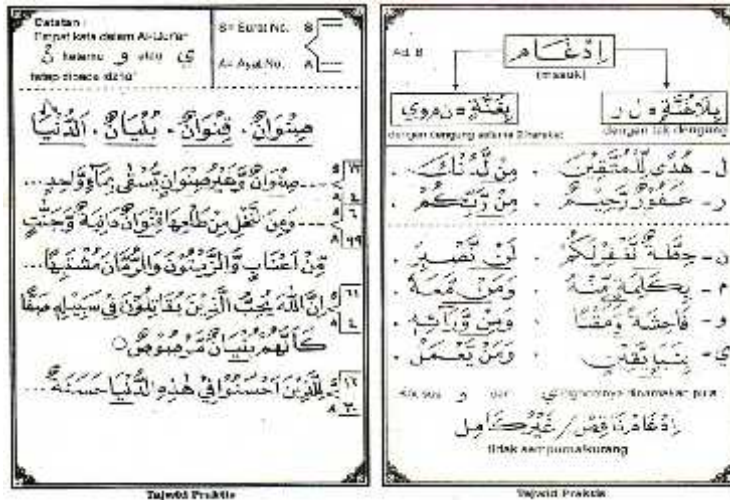 Catatan :
Empat kata dalam Al-Qur'an
نْ ketemu و atau ي
tetap dibaca idzhar
S = Surat No. S
A = Ayat No. A
صِنْوَانٌ . قِنْوَانٌ . بُنْيَانٌ . اَلدُّنْيَا
صِنْوَانٌ وَّغَيْرُ صِنْوَانٍ يُّسْقٰى بِمَآءٍ وَّاحِدٍ ...
وَمِنَ النَّخْلِ مِنْ طَلْعِهَا قِنْوَانٌ دَانِيَةٌ وَّجَنّٰتٍ
مِّنْ اَعْنَابٍ وَّالزَّيْتُوْنَ وَالرُّمَّانَ مُشْتَبِهًا ...
اِنَّ اللّٰهَ يُحِبُّ الَّذِيْنَ يُقَاتِلُوْنَ فِيْ سَبِيْلِهٖ صَفًّا
كَاَنَّهُمْ بُنْيَانٌ مَّرْصُوْصٌ
لِلَّذِيْنَ اَحْسَنُوْا فِيْ هٰذِهِ الدُّنْيَا حَسَنَةٌ ...
Tajwid Praktis
Ad. B
إِدْغَام
(masuk)
بِلَاغُنَّةٍ = ل ر
dengan tak dengung
بِغُنَّةٍ = ن م و ي
dengan dengung selama 2 harakat
ل - هُدًى لِّلْمُتَّقِيْنَ . مِنْ لَّدُنْكَ .
ر - غَفُوْرٌ رَّحِيْمٌ . مِنْ رَّبِّكُمْ .
ن - حِطَّةٌ نَّغْفِرْ لَكُمْ . لَنْ نَّصْبِرَ .
م - بِكَلِمَةٍ مِّنْهُ . وَمَنْ مَّعَهٗ .
و - فَاحِشَةً وَّمَقْتًا . وَمِنْ وَّرَآئِهٖ .
ي - بِنَبَاٍ يَّقِيْنٍ . وَمَنْ يَّعْمَلْ .
Khusus و dan ي dinamakan pula
إِدْغَام نَاقِص / غَيْرُ كَامِل
tidak sempurna/kurang
Tajwid Praktis